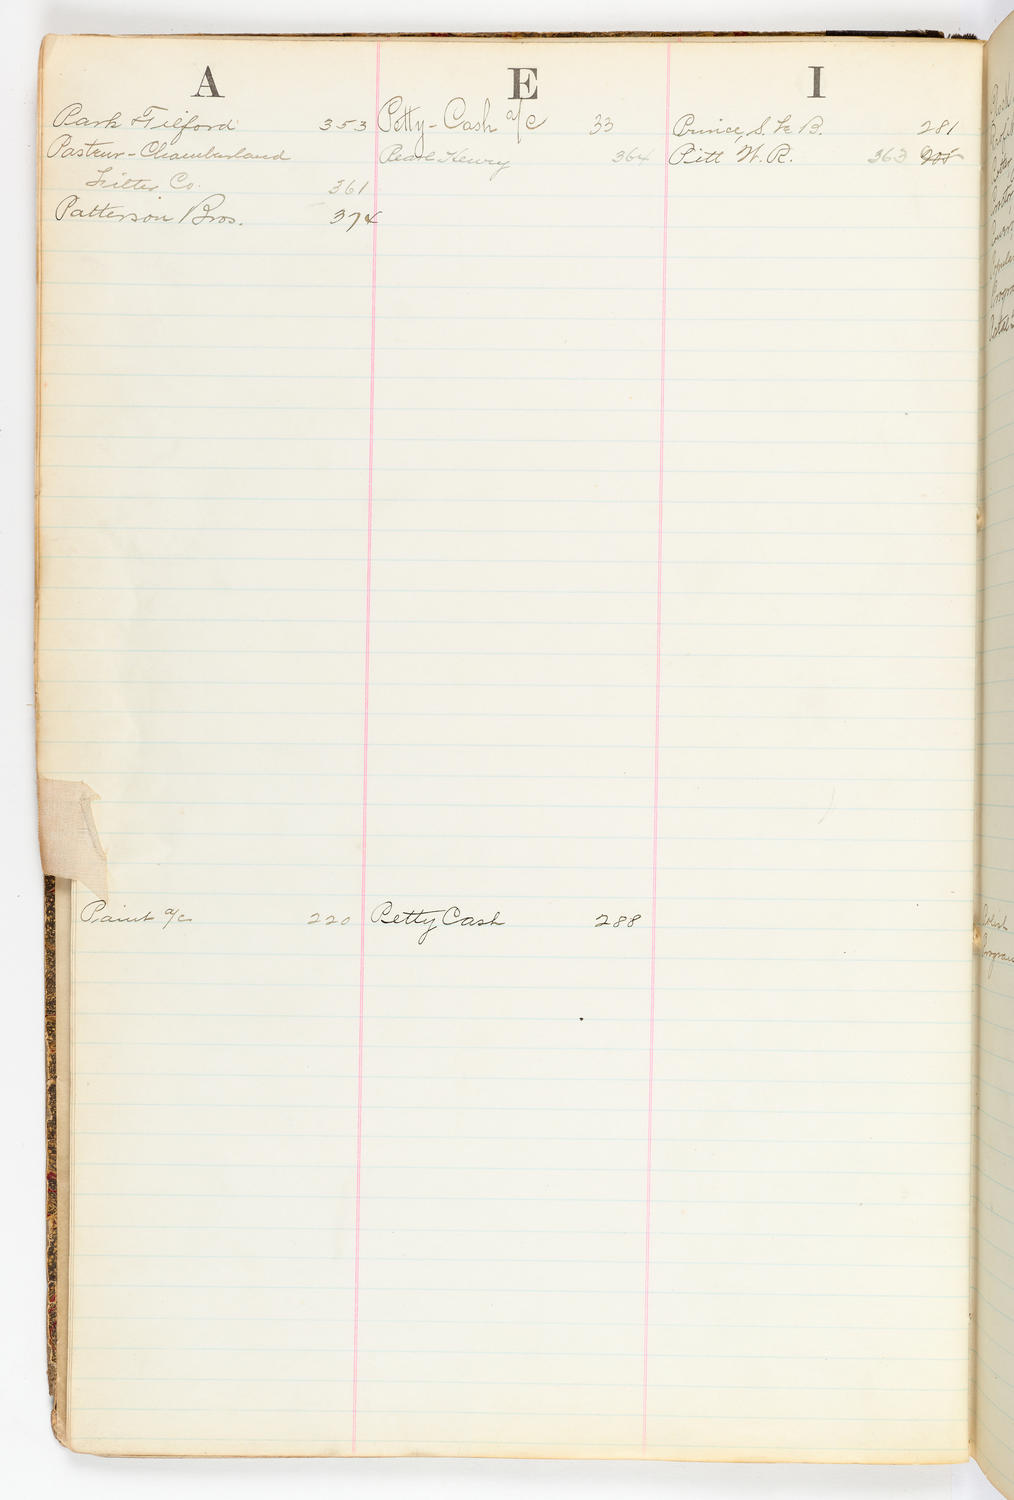 A
Park & Tilford 353
Pasteur-Chamberland
Filter Co. 361
Patterson Bros. 374
Paint a/c 220
E
Petty-Cash a/c 33
Pearl Henry 364
Petty Cash 288
I
Prince, S. & B. 281
Pitt W. R. 363